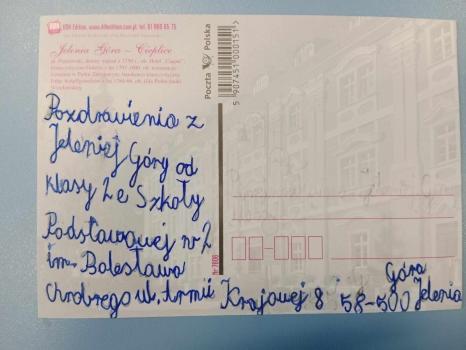 BBK Edition, www.bbkedition.com.pl tel. 61 868 65 75
Jelenia Góra - Cieplice
Poczta Polska
5 907451 000151
Pozdrawienia z
Jeleniej Góry od
klasy 2e Szkoły
Podstawowej nr 2
im. Bolesława
Chrobrego ul. Armii Krajowej 8
58-500 Góra
Jelenia